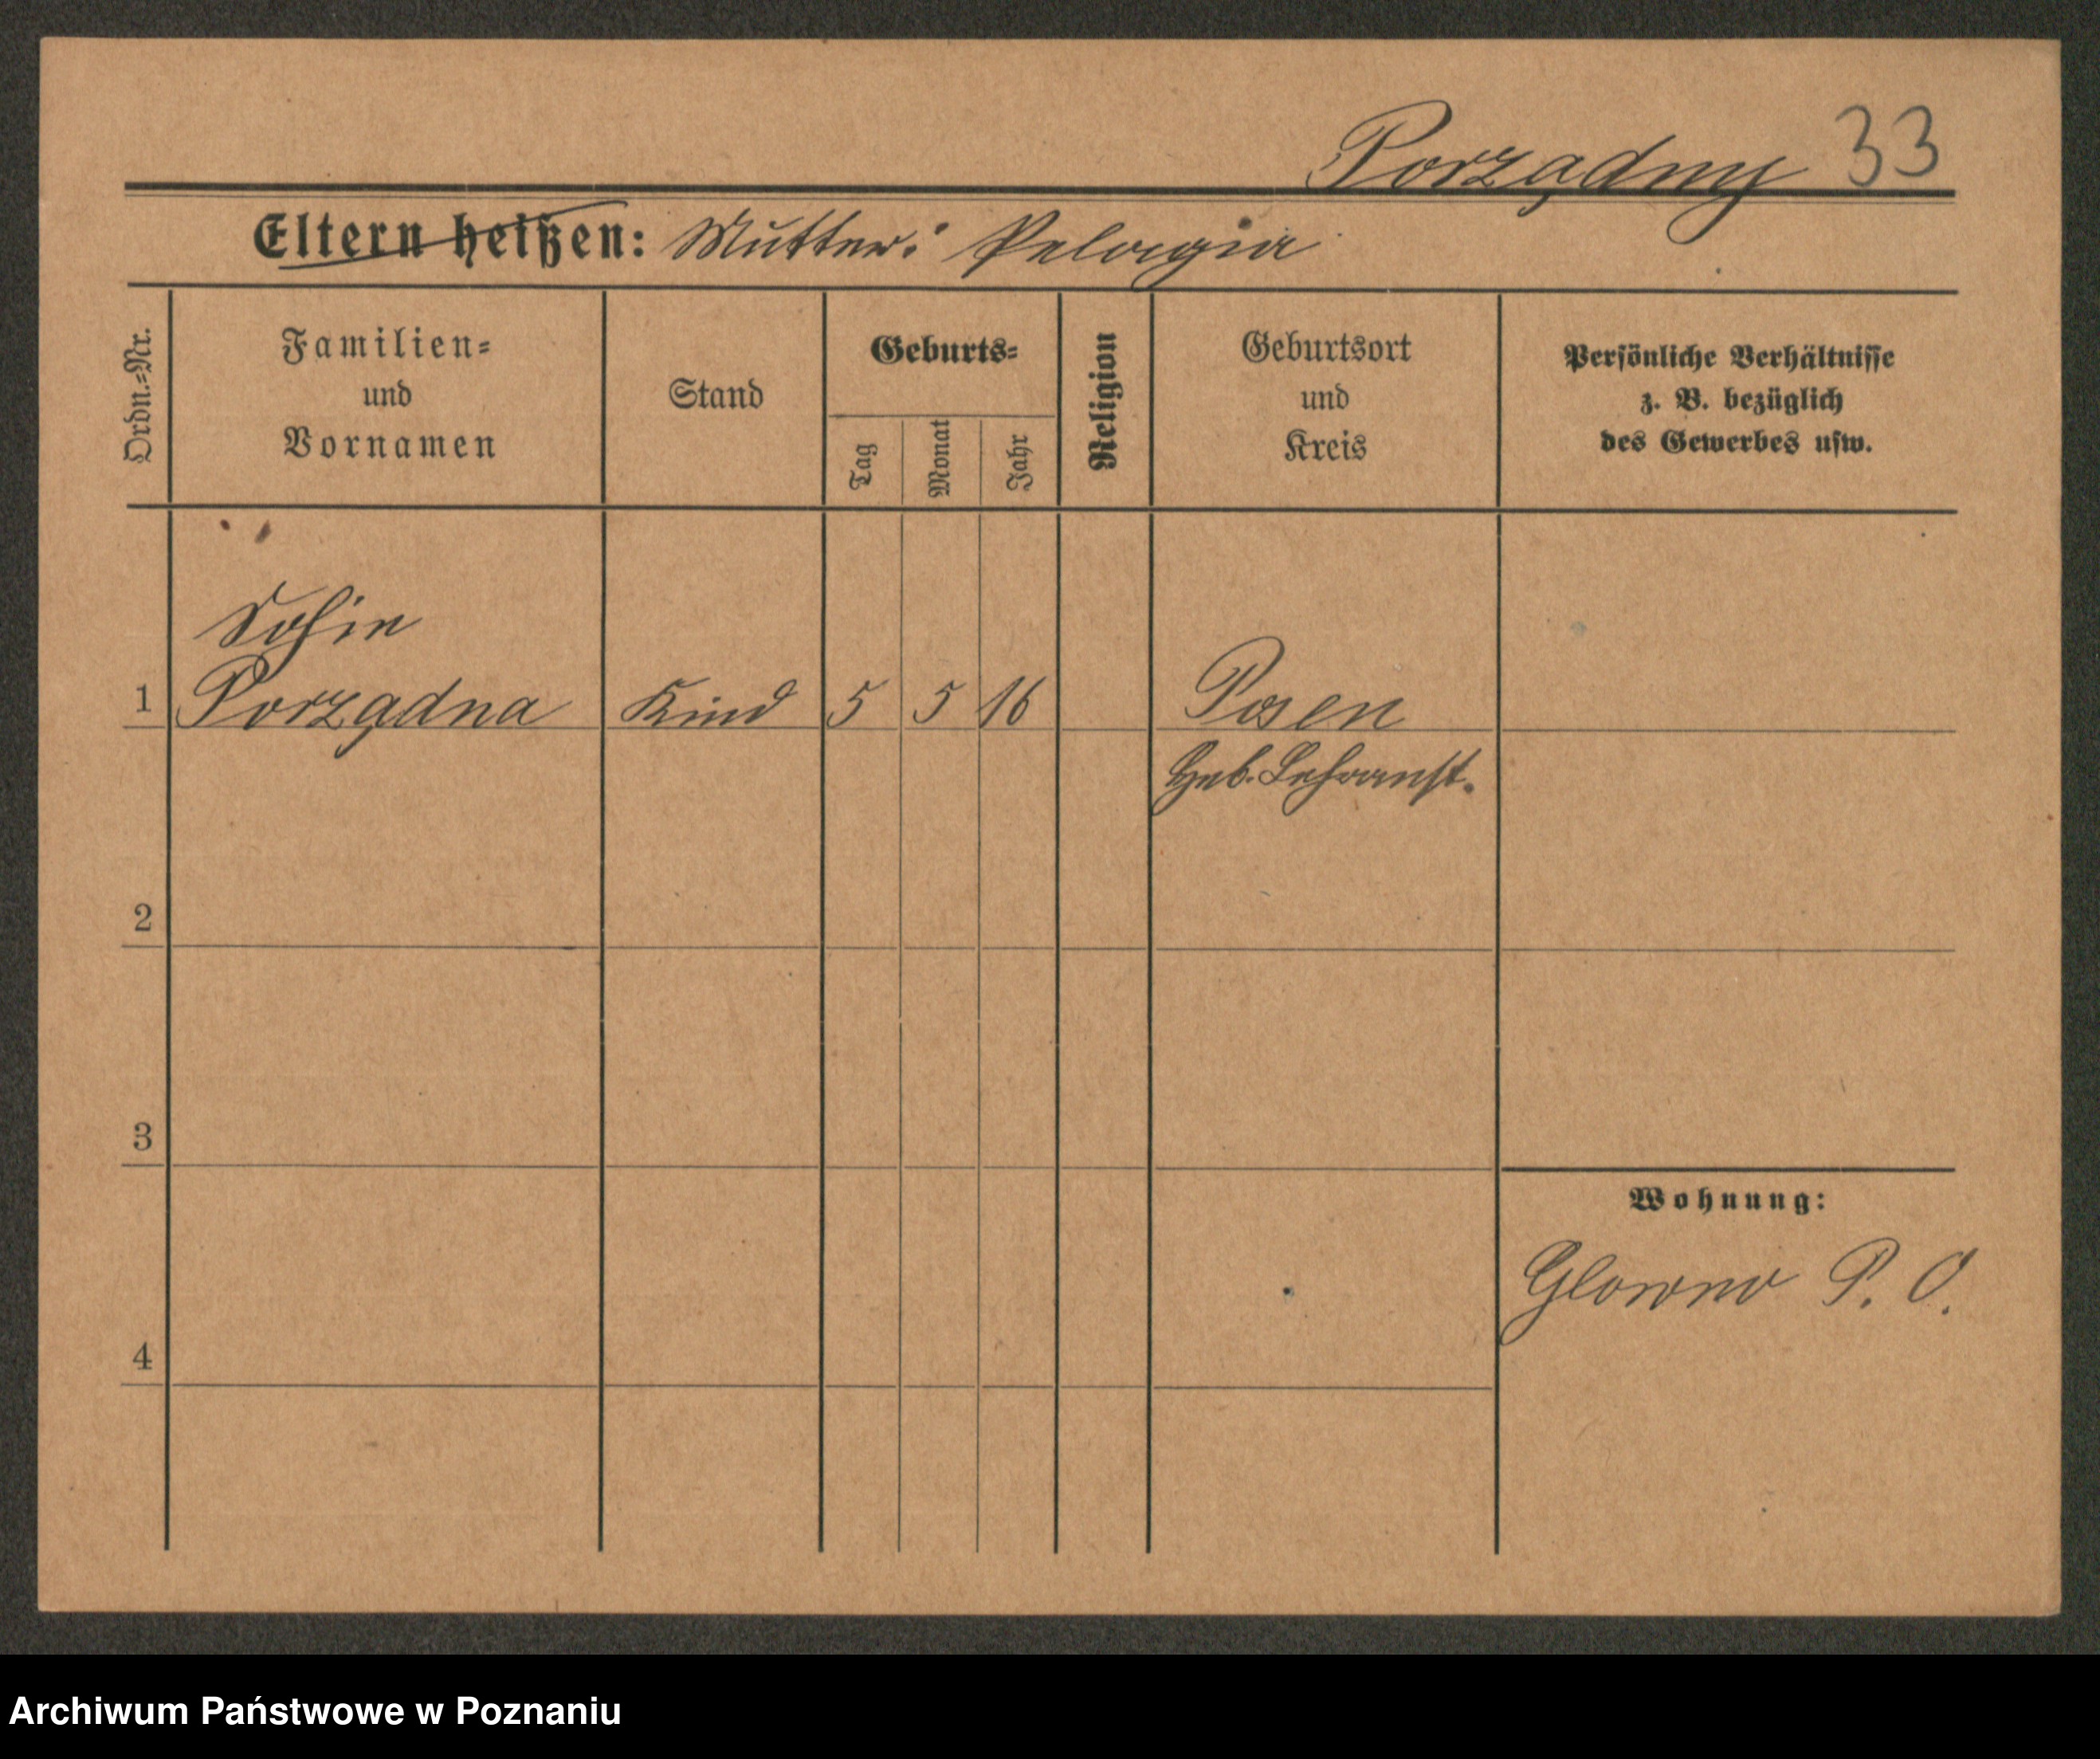 Porządny 33
Eltern heißen: Mutter: Pelagia
Ordn.=Nr.
Familien=
und
Vornamen
Stand
Geburts=
Tag
Monat
Jahr
Religion
Geburtsort
und
Kreis
Persönliche Verhältnisse
z. B. bezüglich
des Gewerbes usw.
Sofie
1 Porządna Kind 5 5 16 Posen
Heb. Lehranst.
2
3
Wohnung:
Glowno P. O.
4
Archiwum Państwowe w Poznaniu